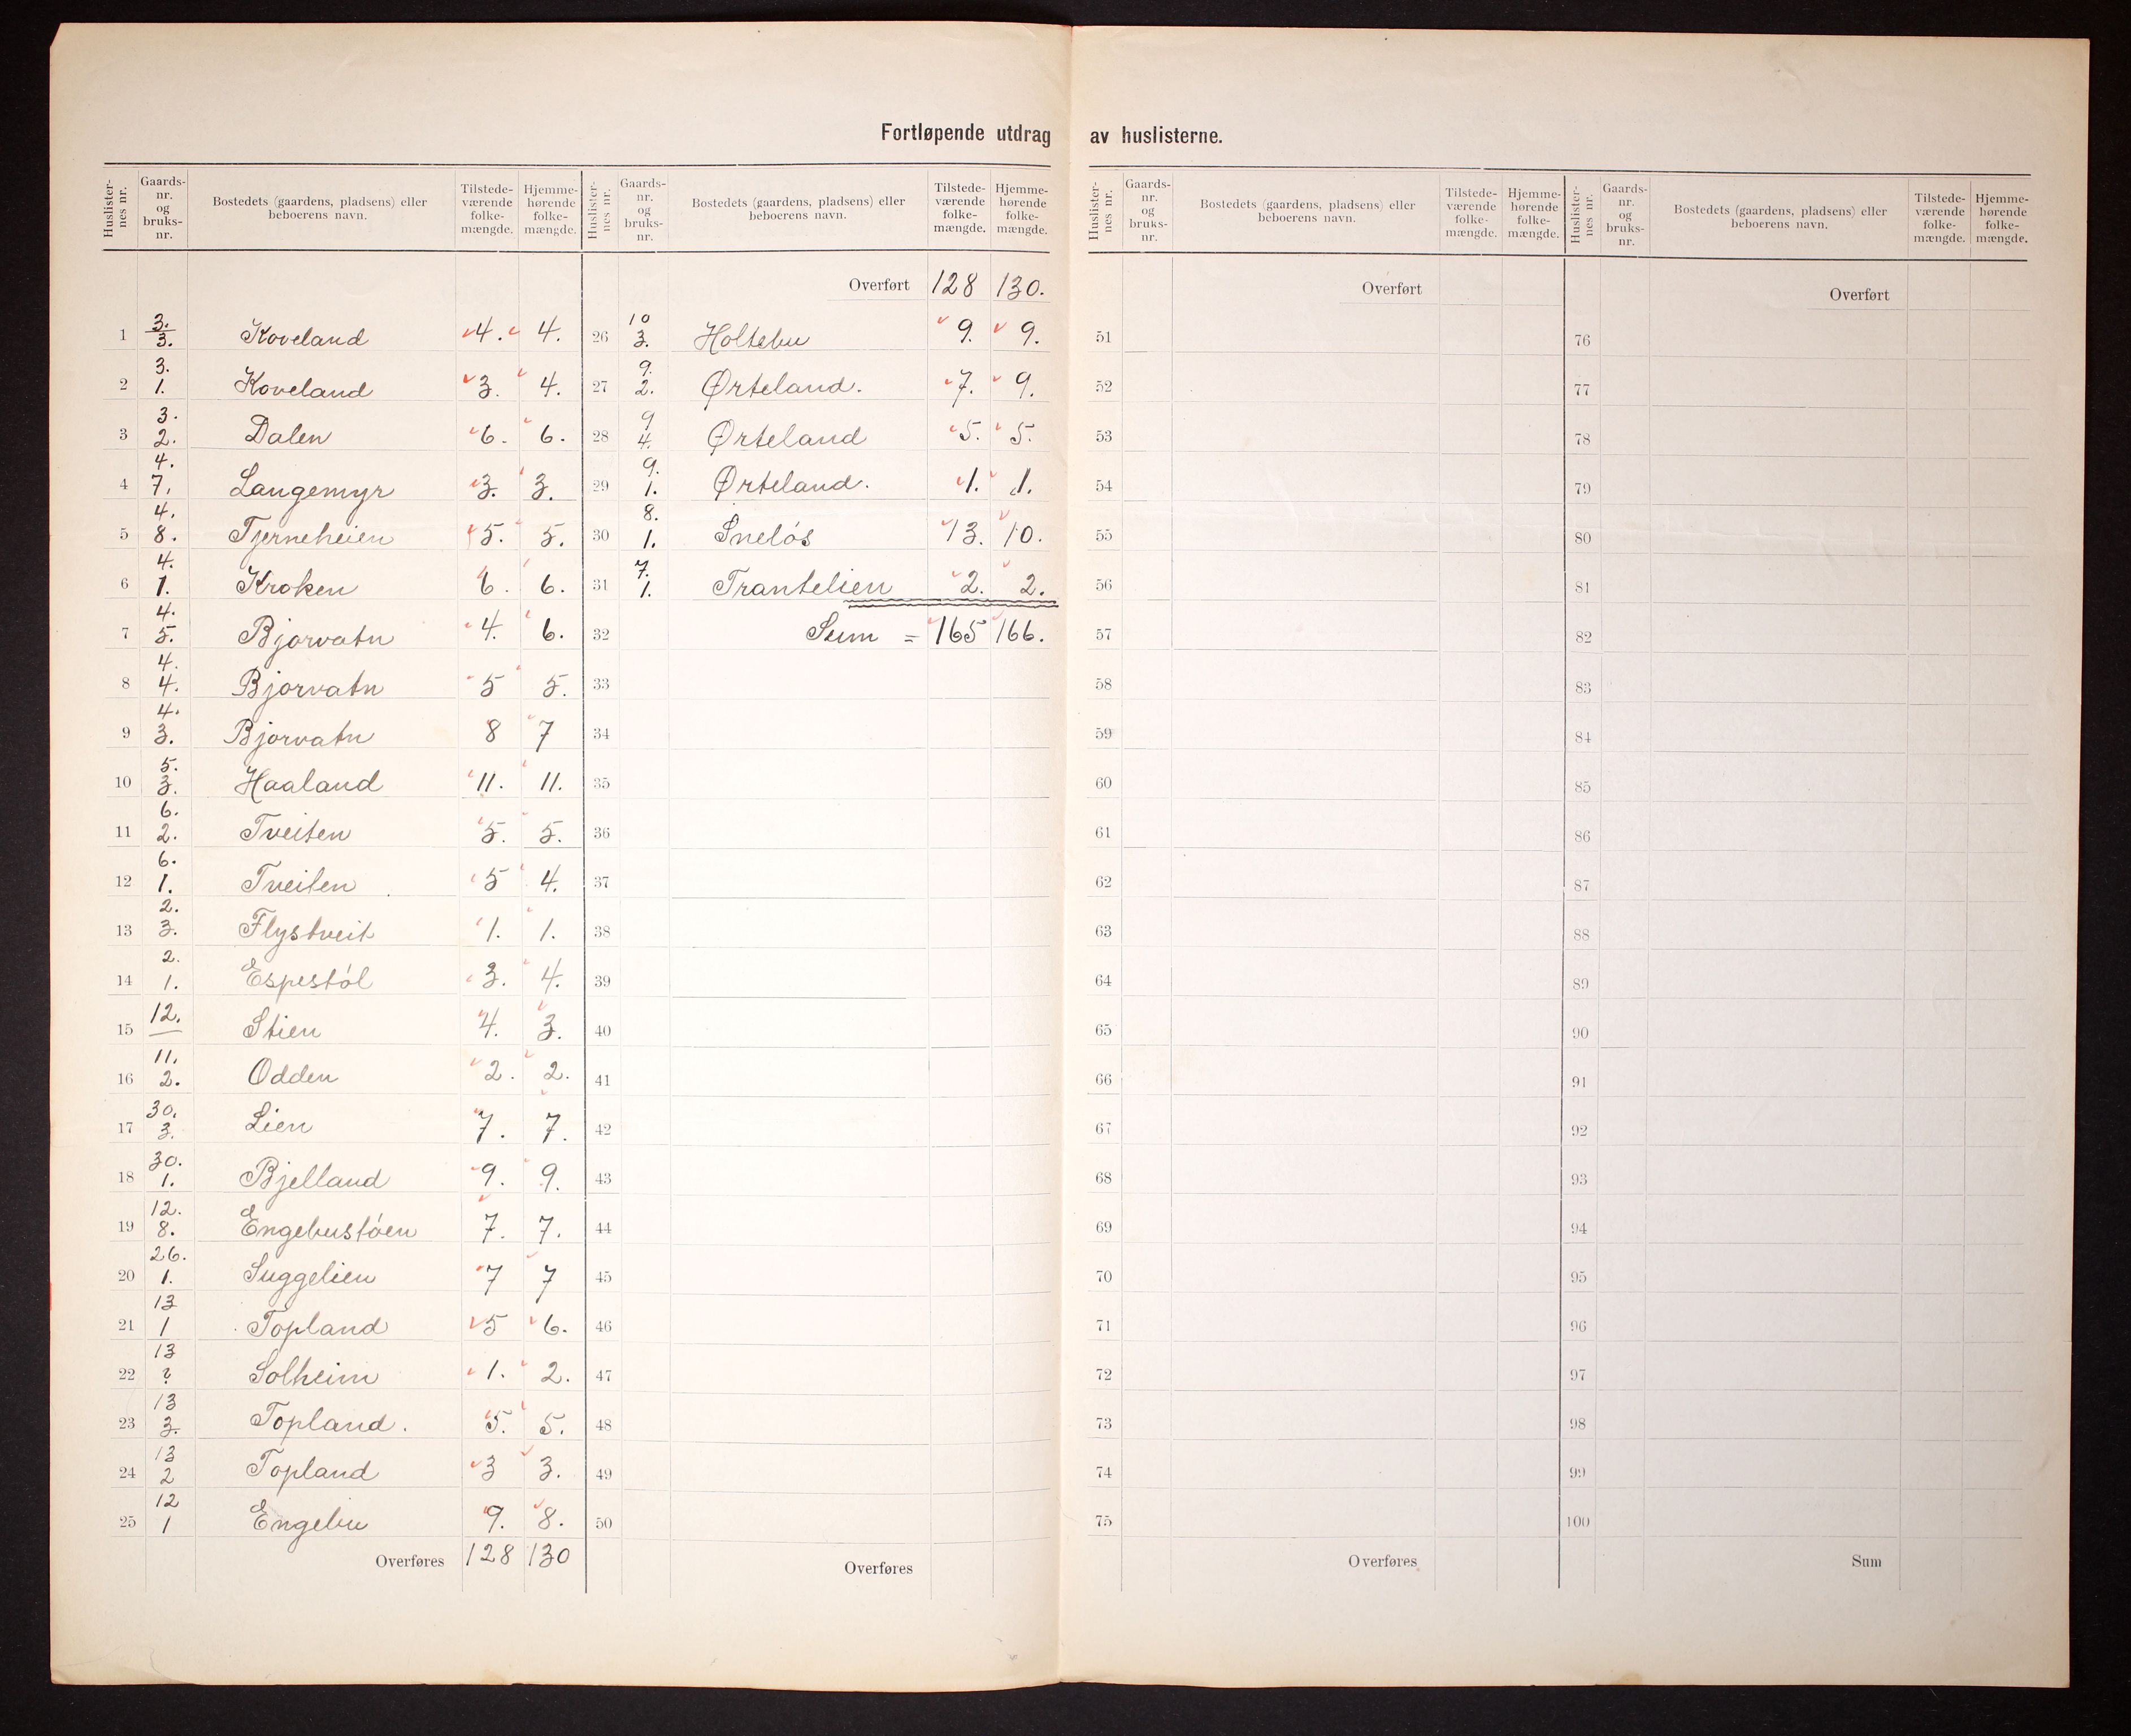 Fortløpende utdrag av huslisterne.
Huslister-nes nr. Gaards-nr. og bruks-nr. Bostedets (gaardens, pladsens) eller beboerens navn. Tilstede-værende folke-mængde. Hjemme-hørende folke-mængde.
1 3. 3. Koveland 4. 4.
2 3. 1. Koveland 3. 4.
3 3. 2. Dalen 6. 6.
4 4. 7. Langemyr 3. 3.
5 4. 8. Tjerneheien 5. 5.
6 4. 1. Kroken 6. 6.
7 4. 5. Bjorvatn 4. 6.
8 4. 4. Bjorvatn 5 5.
9 4. 3. Bjorvatn 8 7
10 5. 3. Haaland 11. 11.
11 6. 2. Tveiten 5. 5.
12 6. 1. Tveiten 5 4.
13 2. 3. Flystveit 1. 1.
14 2. 1. Espestöl 3. 4.
15 12. Stien 4. 3.
16 11. 2. Odden 2. 2.
17 30. 3. Lien 7. 7.
18 30. 1. Bjelland 9. 9.
19 12. 8. Engebustöen 7. 7.
20 26. 1. Suggelien 7 7
21 13 1 Topland 5 6.
22 13 ? Solheim 1. 2.
23 13 3. Topland. 5. 5.
24 13 2 Topland 3 3.
25 12 1 Engebu 9. 8.
Overføres 128 130
Huslister-nes nr. Gaards-nr. og bruks-nr. Bostedets (gaardens, pladsens) eller beboerens navn. Tilstede-værende folke-mængde. Hjemme-hørende folke-mængde.
Overført 128 130.
26 10 3. Holtebu 9. 9.
27 9. 2. Ørteland. 7. 9.
28 9 4. Ørteland 5. 5.
29 9. 1. Ørteland. 1. 1.
30 8. 1. Snelös 13. 10.
31 7. 1. Trantelien 2. 2.
32 Sum = 165 166.
33
34
35
36
37
38
39
40
41
42
43
44
45
46
47
48
49
50
Overføres
Huslister-nes nr. Gaards-nr. og bruks-nr. Bostedets (gaardens, pladsens) eller beboerens navn. Tilstede-værende folke-mængde. Hjemme-hørende folke-mængde.
Overført
51
52
53
54
55
56
57
58
59
60
61
62
63
64
65
66
67
68
69
70
71
72
73
74
75
Overføres
Huslister-nes nr. Gaards-nr. og bruks-nr. Bostedets (gaardens, pladsens) eller beboerens navn. Tilstede-værende folke-mængde. Hjemme-hørende folke-mængde.
Overført
76
77
78
79
80
81
82
83
84
85
86
87
88
89
90
91
92
93
94
95
96
97
98
99
100
Sum